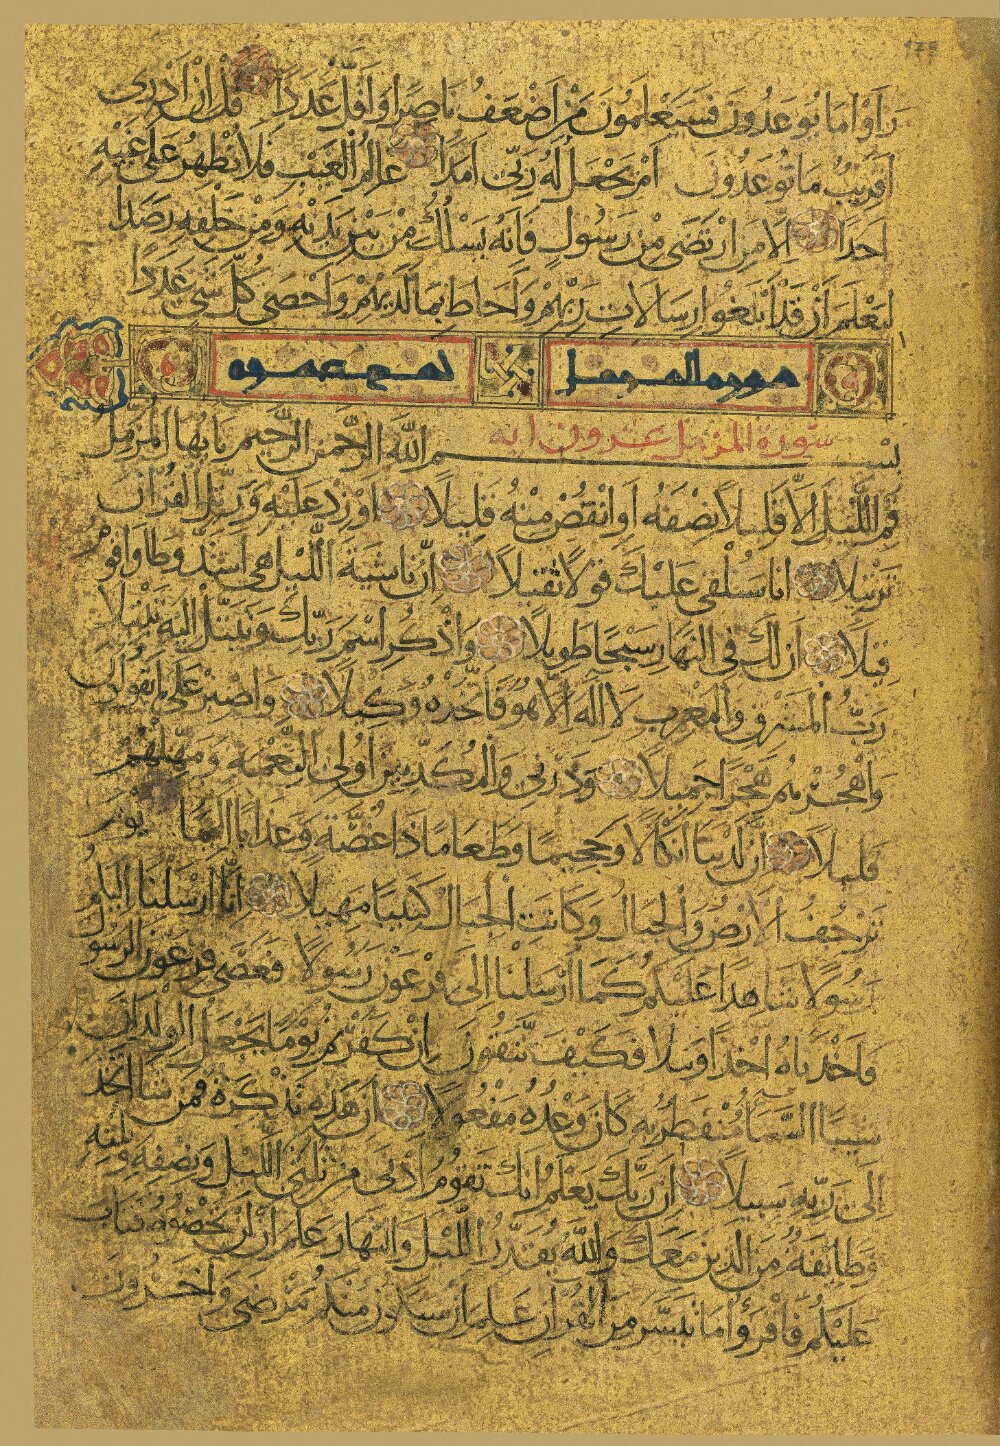 ١٧٩
رأوا ما يوعدون فسيعلمون من اضعف ناصرا واقل عددا قل ان ادرى
اقريب ما توعدون ام يجعل له ربى امدا عالم الغيب فلا يظهر على غيبه
احدا الا من ارتضى من رسول فانه يسلك من بين يديه ومن خلفه رصدا
ليعلم ان قد ابلغوا رسالات ربهم واحاط بما لديهم واحصى كل شى عددا
سورة المزمل
سورة المزمل عشرون اية
بسم الله الرحمن الرحيم يايها المزمل
قم الليل الا قليلا نصفه او انقص منه قليلا او زد عليه ورتل القرآن
ترتيلا انا سنلقى عليك قولا ثقيلا ان ناشية الليل هى اشد وطا واقوم
قيلا ان لك فى النهار سبحا طويلا واذكر اسم ربك وتبتل اليه تبتيلا
رب المشرق والمغرب لا اله الا هو فاتخذه وكيلا واصبر على ما يقولون
واهجرهم هجرا جميلا وذرنى والمكذبين اولى النعمة ومهلهم
قليلا ان لدينا انكالا وجحيما وطعاما ذا غصة وعذابا اليما يوم
ترجف الارض والجبال وكانت الجبال كثيبا مهيلا انا ارسلنا اليكم
رسولا شاهدا عليكم كما ارسلنا الى فرعون رسولا فعصى فرعون الرسول
فاخذناه اخذا وبيلا فكيف تتقون ان كفرتم يوما يجعل الولدان
شيبا السماء منفطر به كان وعده مفعولا ان هذه تذكرة فمن شا اتخذ
الى ربه سبيلا ان ربك يعلم انك تقوم ادنى من ثلثى الليل ونصفه وثلثه
وطايفة من الذين معك والله يقدر الليل والنهار علم ان لن تحصوه فتاب
عليكم فاقرؤا ما تيسر من القرآن علم ان سيكون منكم مرضى وآخرون